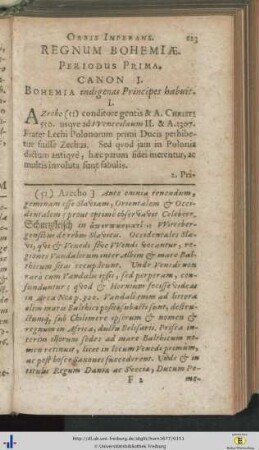 ORBIS IMPERANT. 123
REGNUM BOHEMIÆ.
PERIODUS PRIMA.
CANON I.
BOHEMIA indigenas Principes habuit.
I.
A Zecho (11) conditore gentis & A. CHRISTI
550. usque ad Wenceslaum II. & A. 1307.
Frater Lechi Polonorum primi Ducis perhibe-
tur fuisse Zechus. Sed quod jam in Polonia
dictum antiquè, hæc parum fidei merentur, ac
multis involuta sunt fabulis.
2. Pri-
(11) Azecho] Ante omnia tenendum,
geminam esse Slaviam, Orientalem & Occi-
dentalem: prout optimè observavit Celeberr.
Schurtzfleisch in
bergensibus de rebus Slavicis. Occidentales Sla-
vi, qui & Venedi sive Wendi vocantur, regi-
ones Vandalicum inter Albim & mare Balt-
hicum sitas occupârunt. Unde Venedi non
rarò cum Vandalis ipsi, sed perperam, con-
funduntur: quod & Hornium fecisse videas
in Arca Noæ p. 300. Vandali enim ad littora
olim maris Balthici positi subacto sunt, destru-
ctumq; sub Chilimere ipsorum & nomen &
regnum in Africa, ductu Belisarii. Prisca in-
terim illorum sedes ad mare Balthicum no-
men retinuit, licet in locum Venedi primùm,
ac post hos Saxones succederent. Unde & in
titulis Regum Daniæ ac Sveciæ, Ducum Po-
F 2 me-
http://dl.ub.uni-freiburg.de/diglit/horn1677/0151
© Universitätsbibliothek Freiburg